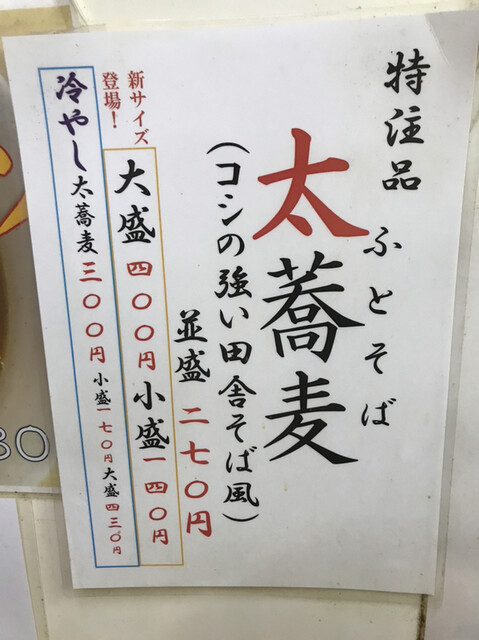 特注品
ふとそば
太蕎麦
（コシの強い田舎そば風）
並盛 二七〇円
新サイズ登場！
大盛 四〇〇円 小盛一四〇円
冷やし太蕎麦 三〇〇円 小盛一七〇円 大盛四三〇円
80